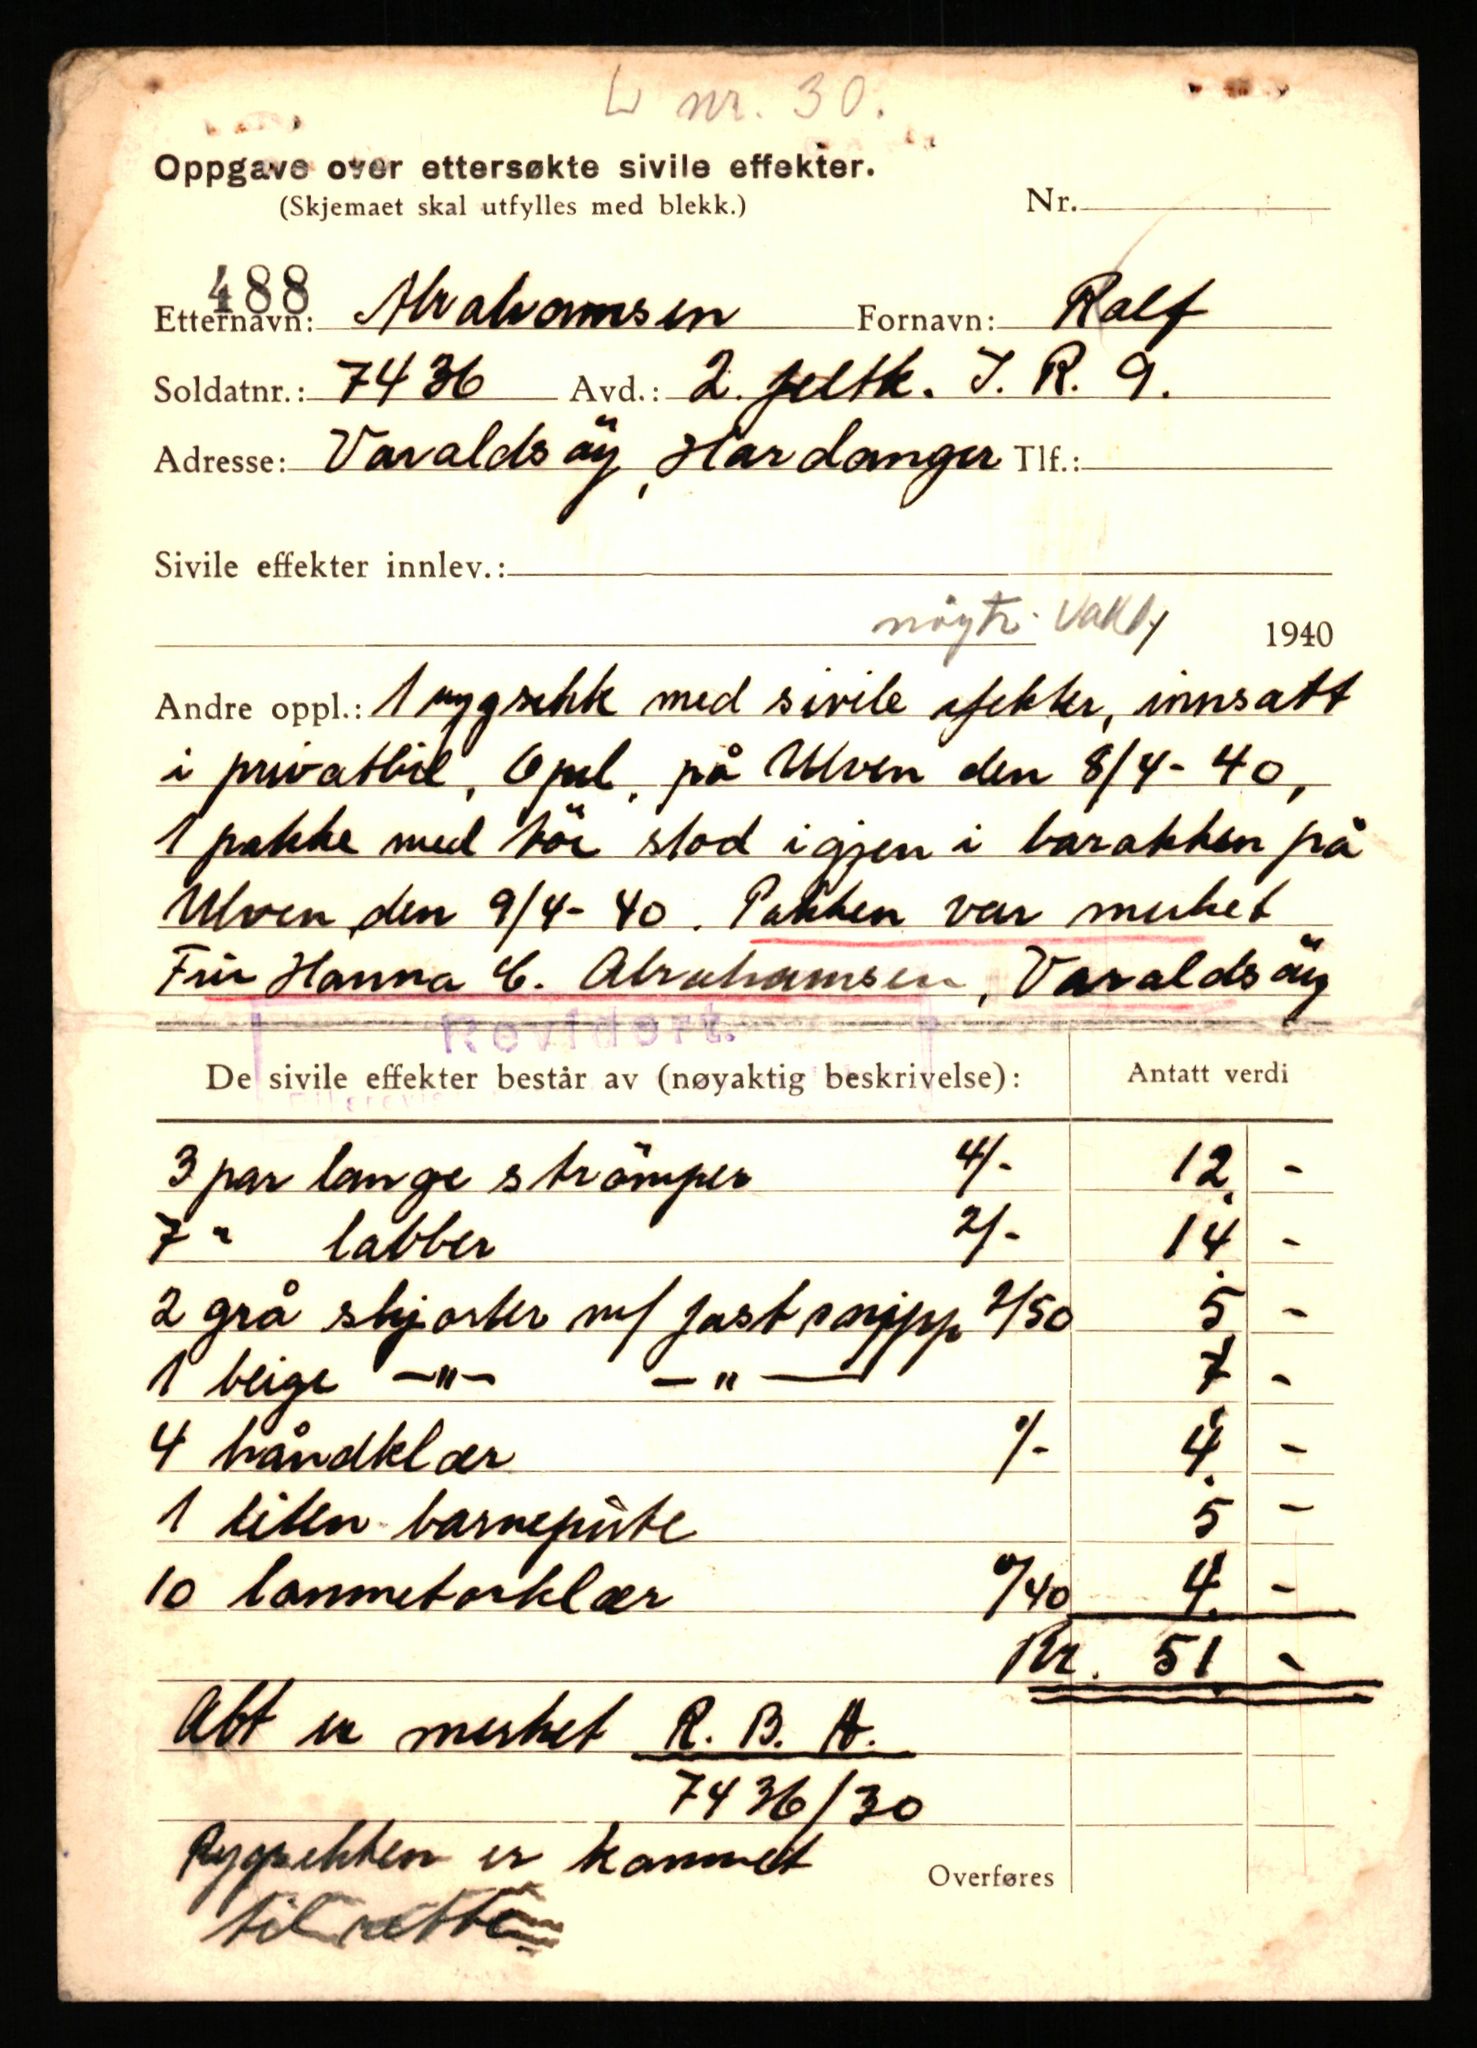 L nr. 30.
Oppgave over ettersøkte sivile effekter.
(Skjemaet skal utfylles med blekk.) Nr.
488
Etternavn: Abrahamsen Fornavn: Ralf
Soldatnr.: 7436 Avd.: 2. feltk. I. R. 9.
Adresse: Varaldsöy, Hardanger Tlf.:
Sivile effekter innlev.:
1940
Andre oppl.: 1 rygsekk med sivile efekter, innsatt
i privatbil, Opel, på Ulven den 8/4-40,
1 pakke med töi stod igjen i barakken på
Ulven den 9/4-40. Pakken var merket
Fru Hanna C. Abrahamsen, Varaldsöy
Revidert.
De sivile effekter består av (nøyaktig beskrivelse): Antatt verdi
3 par lange strömper 4/- 12 -
7 " labber 2/- 14 -
2 grå skjorter m/ fast snipp 2/50 5 -
1 beige -"- -"- 7 -
4 håndklær 1/- 4 -
1 liten barnepute 5 -
10 lommetorklær 0/40 4 -
Kr. 51 -
Alt er merket R. B. A.
7436/30
Rygsekken er kommet
til rette
Overføres